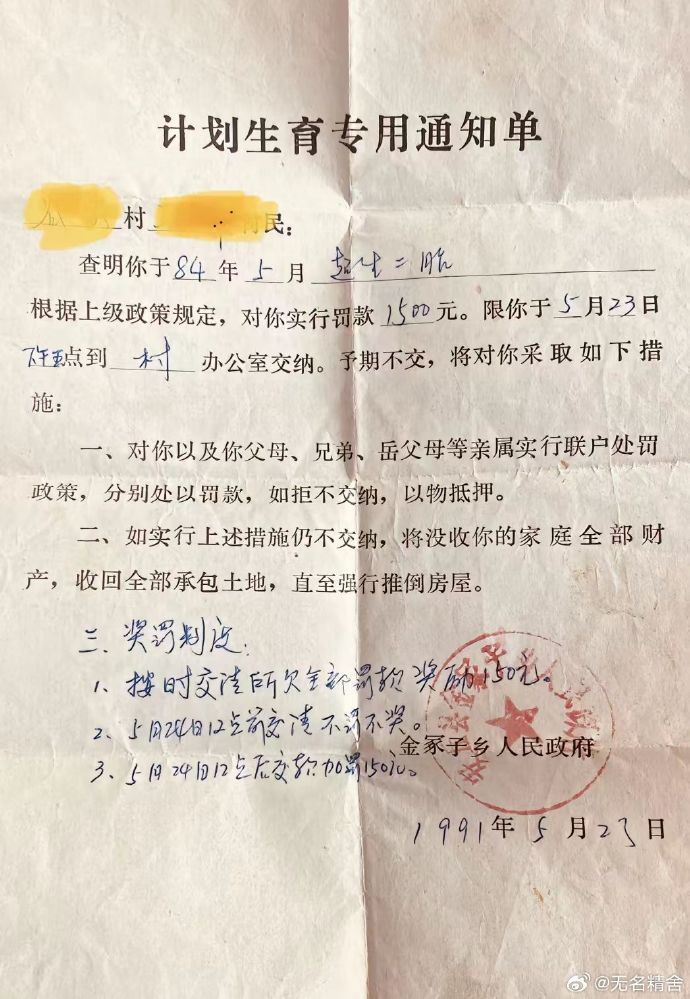 计划生育专用通知单
村
村民：
查明你于84年5月超生二胎
根据上级政策规定，对你实行罚款1500元。限你于5月23日
下午五点到村办公室交纳。予期不交，将对你采取如下措
施：
一、对你以及你父母、兄弟、岳父母等亲属实行联户处罚
政策，分别处以罚款，如拒不交纳，以物抵押。
二、如实行上述措施仍不交纳，将没收你的家庭全部财
产，收回全部承包土地，直至强行推倒房屋。
三、奖罚制度：
1、按时交清所欠全部罚款奖励150元。
2、5月24日12点前交清不罚不奖。
3、5月24日12点后交款加罚150元。
金冢子乡人民政府
1991年5月23日
@无名精舍